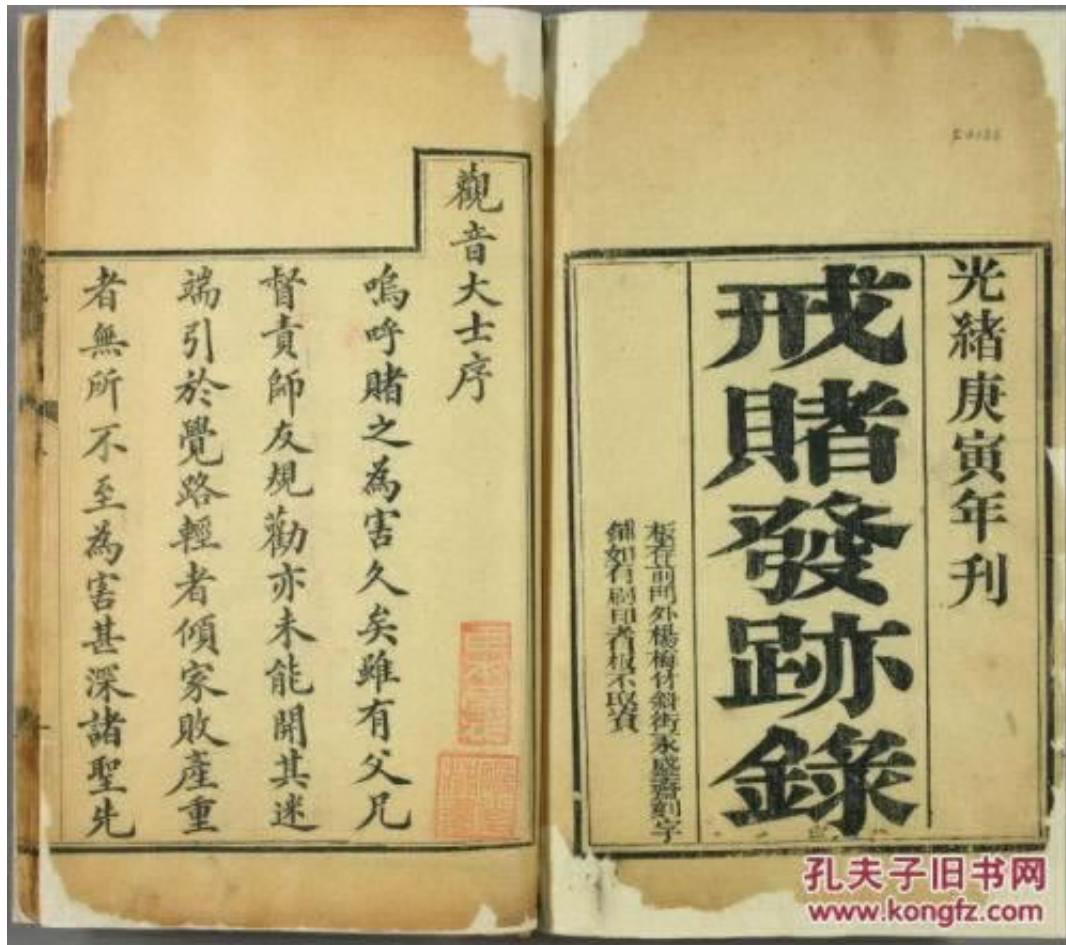 光緒庚寅年刊
戒賭發跡錄
板存前門外楊梅竹斜街永盛齋刻字
鋪如有刷印者板不取資
觀音大士序
嗚呼賭之為害久矣雖有父兄
督責師友規勸亦未能開其迷
端引於覺路輕者傾家敗產重
者無所不至為害甚深諸聖先
孔夫子旧书网
www.kongfz.com